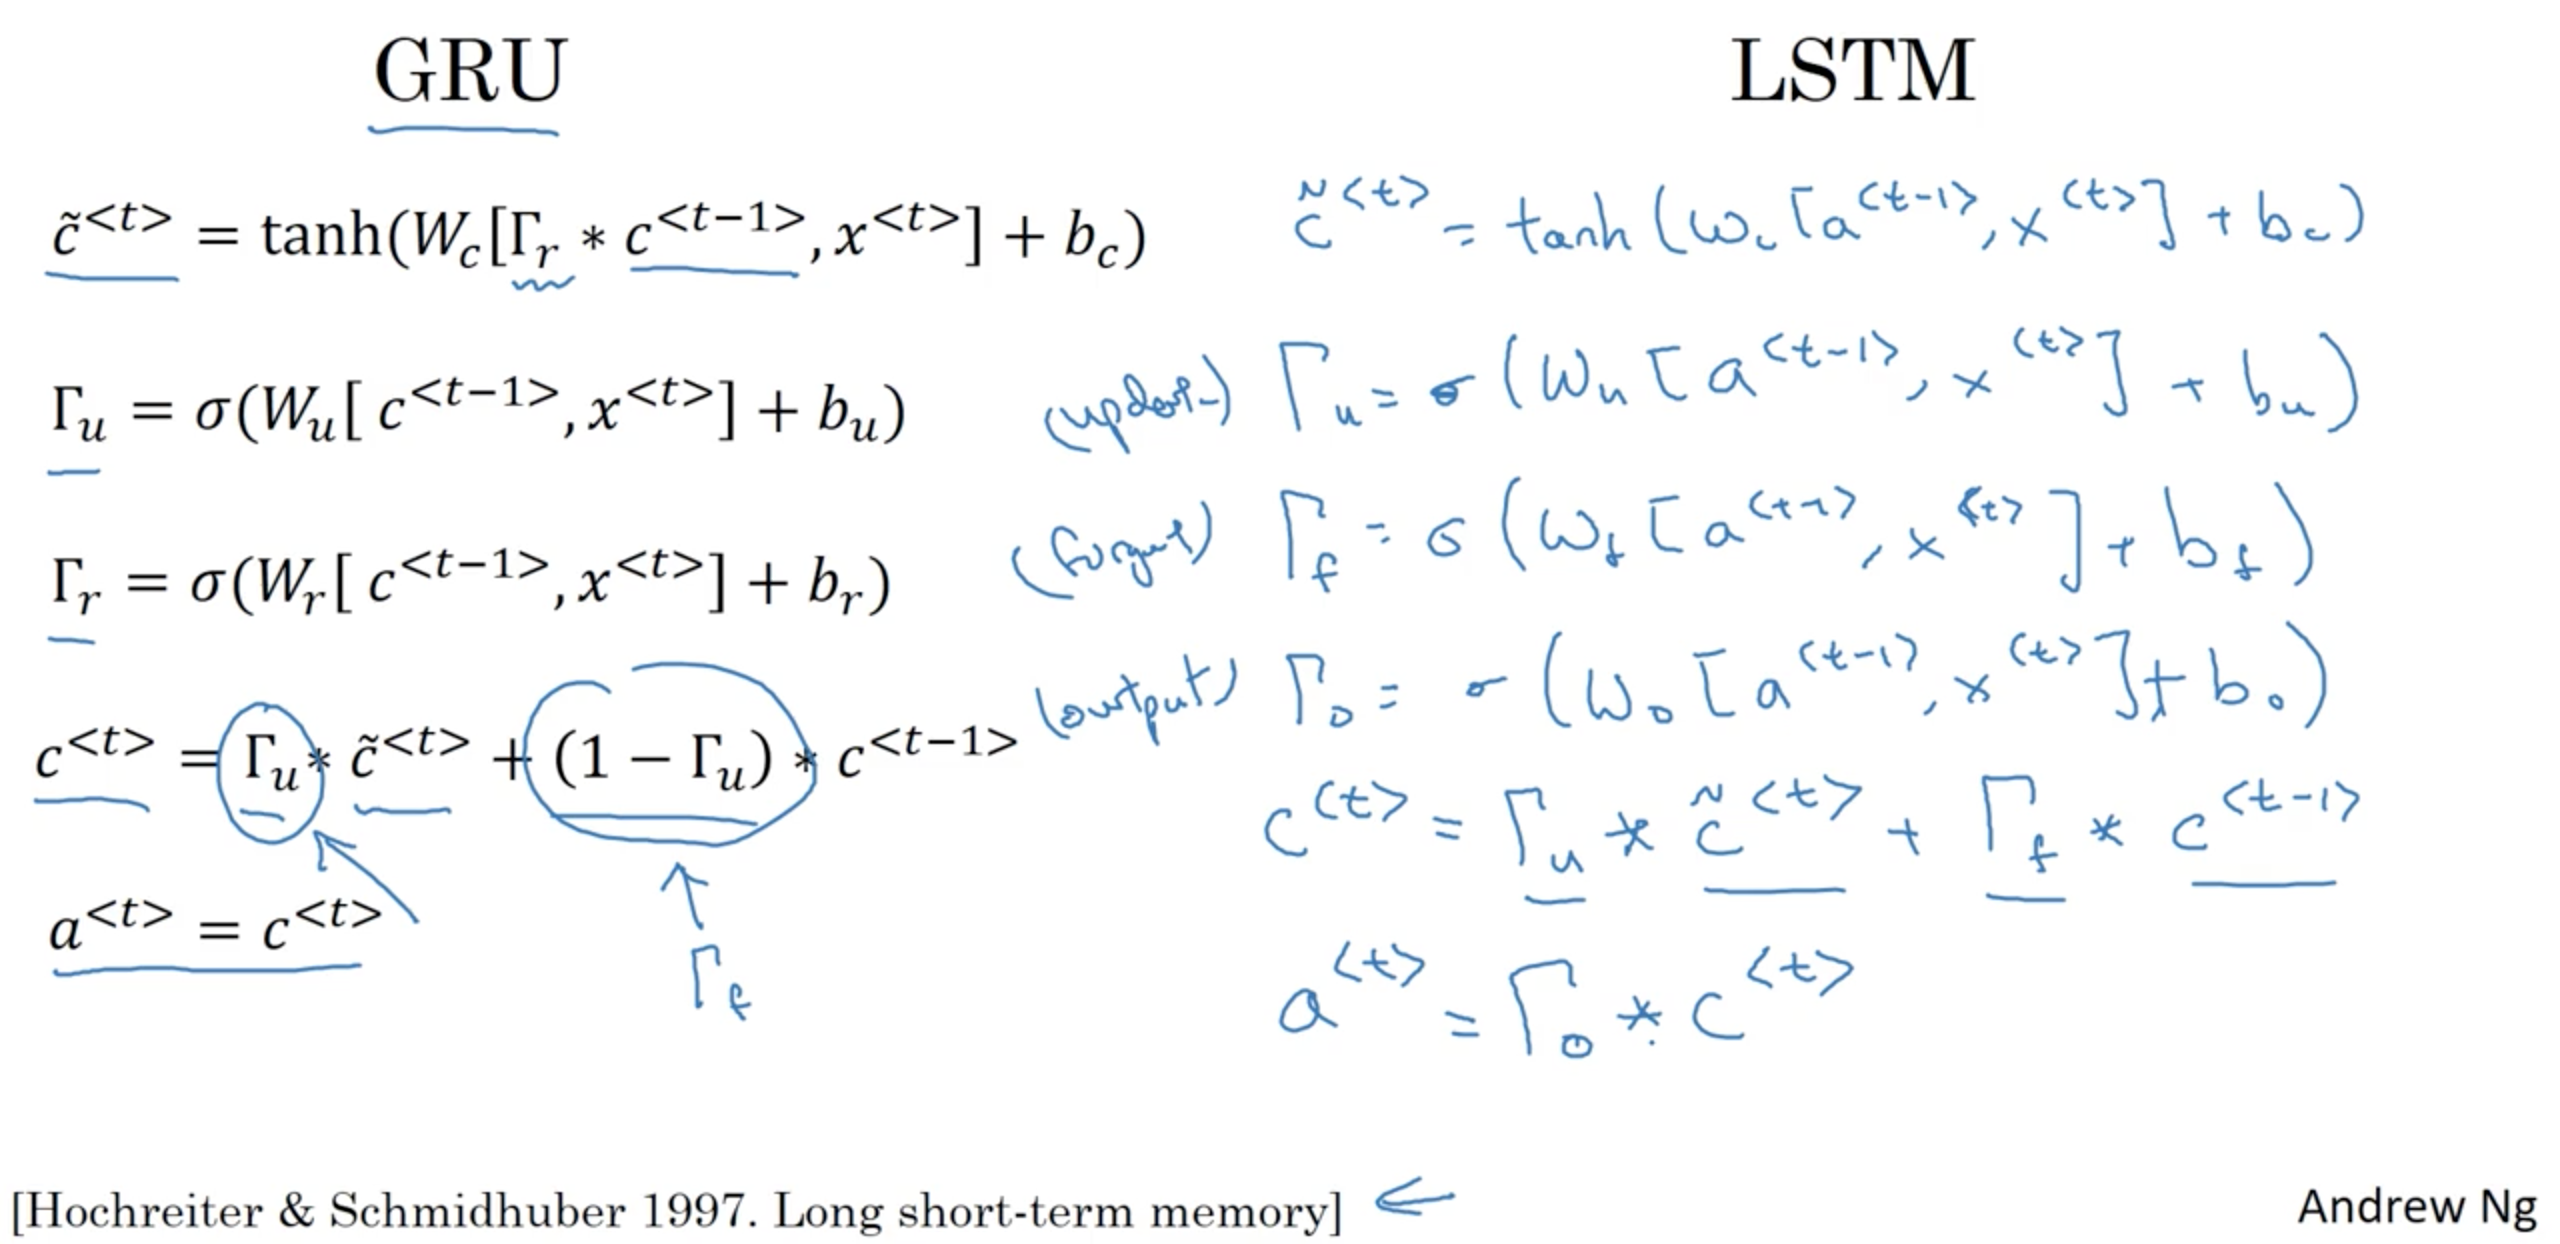 GRU
LSTM
c̃<t> = tanh(W_c[Γ_r * c<t−1>, x<t>] + b_c)
Γ_u = σ(W_u[ c<t−1>, x<t>] + b_u)
Γ_r = σ(W_r[ c<t−1>, x<t>] + b_r)
c<t> = Γ_u * c̃<t> + (1 − Γ_u) * c<t−1>
a<t> = c<t>
Γ_f
c̃<t> = tanh(W_c[a<t-1>, x<t>] + b_c)
(update) Γ_u = σ(W_u[a<t-1>, x<t>] + b_u)
(forget) Γ_f = σ(W_f[a<t-1>, x<t>] + b_f)
(output) Γ_o = σ(W_o[a<t-1>, x<t>] + b_o)
c<t> = Γ_u * c̃<t> + Γ_f * c<t-1>
a<t> = Γ_o * c<t>
[Hochreiter & Schmidhuber 1997. Long short-term memory] ←
Andrew Ng